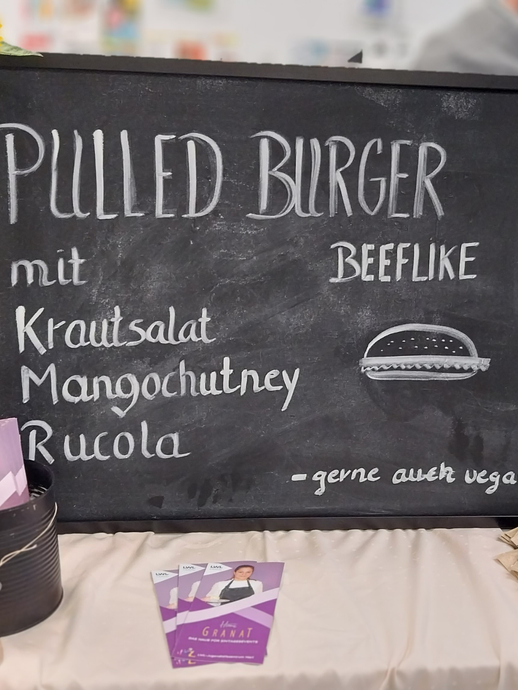 PULLED BURGER
mit
BEEFLIKE
Krautsalat
Mangochutney
Rucola
- gerne auch vega
GRANAT